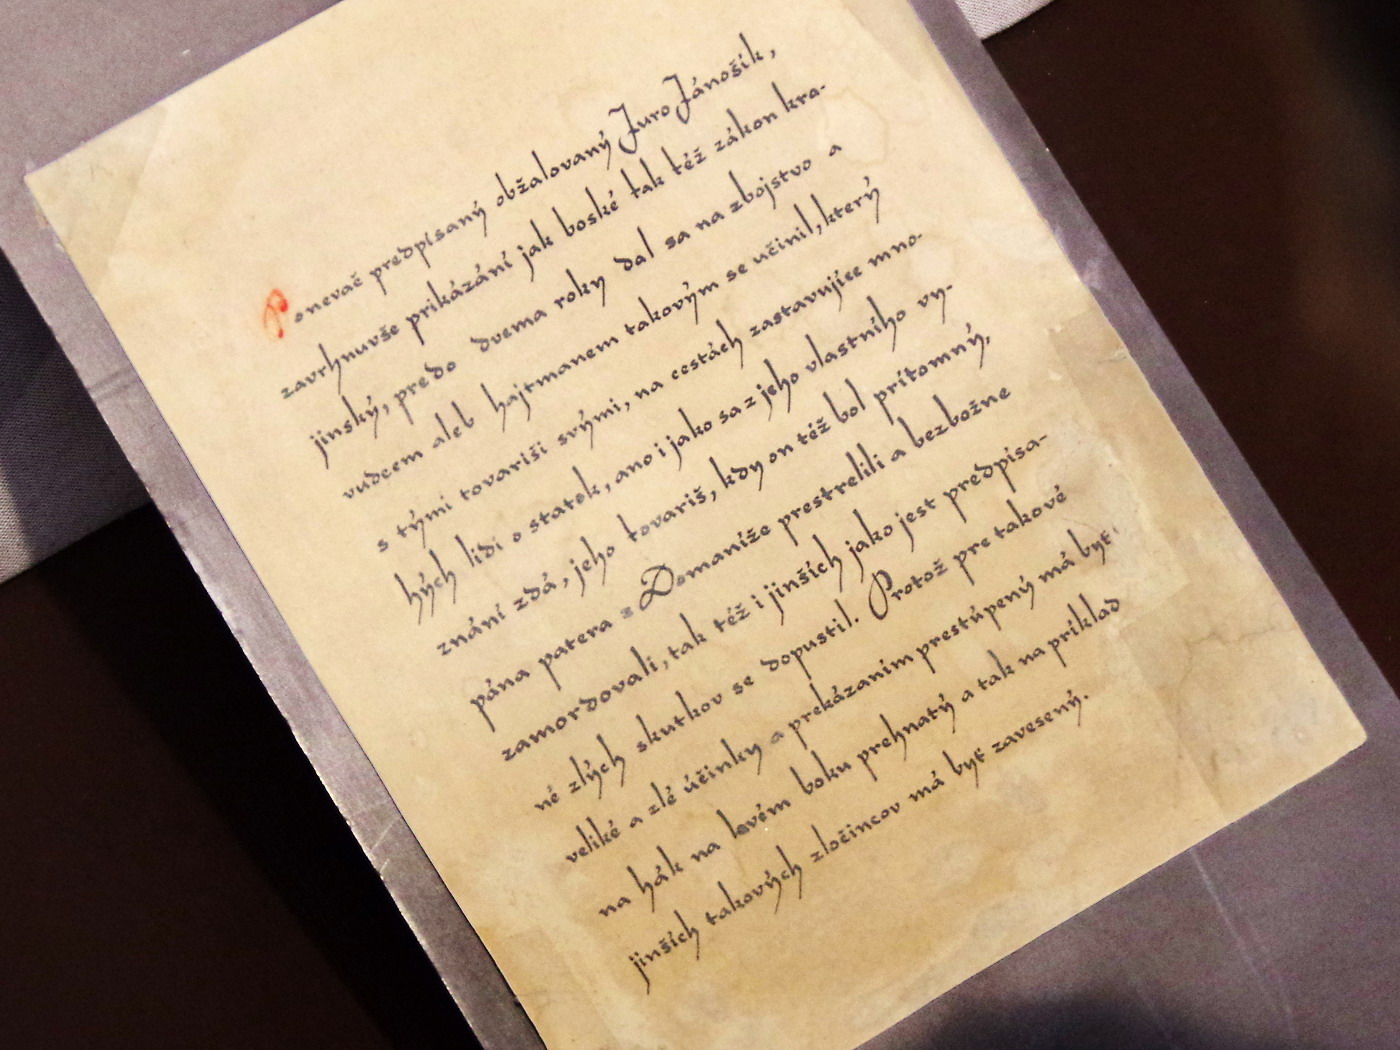 Ponevač predpísaný obžalovaný Juro Jánošík,
zavrhnuvše prikázání jak boské tak též zákon kra-
jinský, predo dvema roky dal sa na zbojstvo a
vudcem aleb hajtmanem takovým se učinil, který
s tými tovariši svými, na cestách zastavujíce mno-
hých lidi o statek, ano i jako sa z jeho vlastního vy-
znání zdá, jeho tovariš, kdy on též bol prítomný,
pána patera z Domaníže prestrelili a bezbožne
zamordovali, tak též i jinších jako jest predpísa-
né zlých skutkov se dopustil. Protož pre takové
veliké a zlé účinky a prekázaním prestúpený má byť
na hák na levém boku prehnatý a tak na príklad
jinších takových zločincov má byť zavesený.